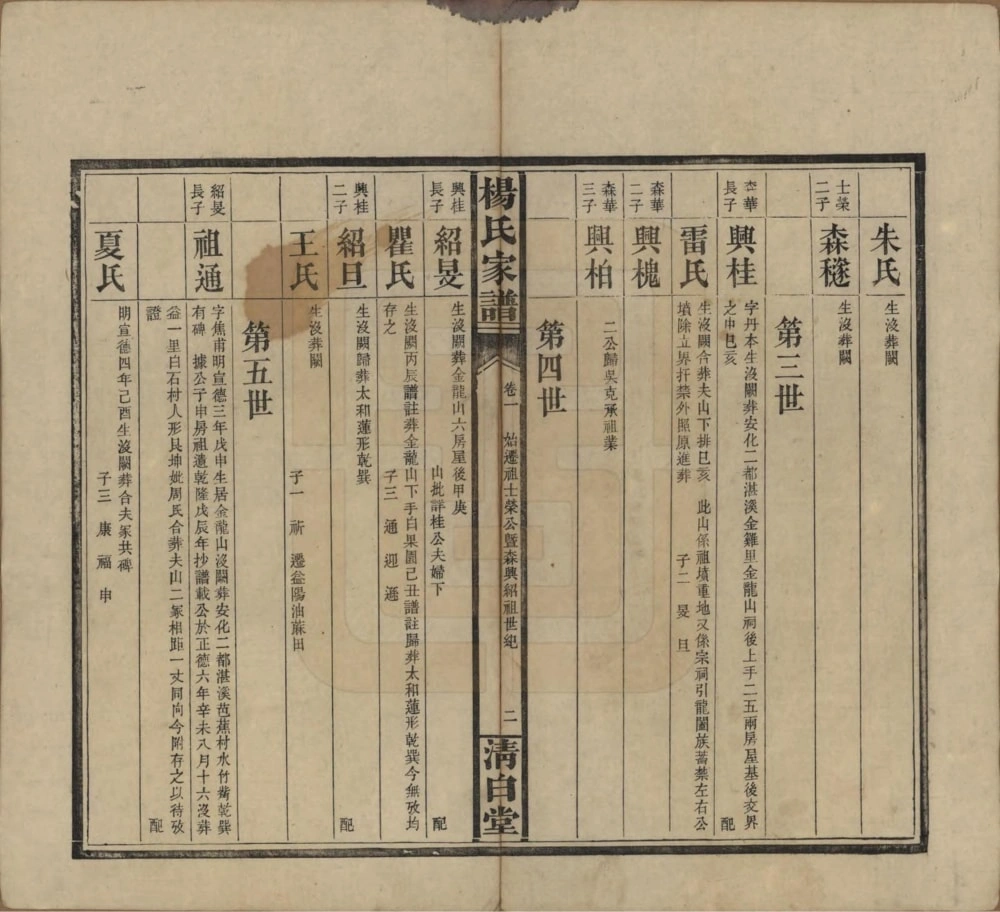 朱氏
生沒葬闕
士榮二子
森穟
生沒葬闕
第三世
森華長子
興桂
字丹本生沒闕葬安化二都湛溪金雞里金龍山祠後上手二五兩房屋基後交界
之申巳亥
配
雷氏
生沒闕合葬夫山下排巳亥 此山係祖墳重地又係宗祠引龍闔族蓄禁左右公
墳除立界扦禁外照原進葬 子二 旻 旦
森華二子
興槐
森華三子
興柏
二公歸吳克承祖業
第四世
楊氏家譜
卷一 始遷祖士榮公暨森興紹祖世紀
二
清白堂
興桂長子
紹旻
生沒闕葬金龍山六房屋後甲庚
山批詳桂公夫婦下
配
瞿氏
生沒闕丙辰譜註葬金龍山下手白果園己丑譜註歸葬太和蓮形乾巽今無攷均
存之 子三 通 迎 遜
興桂二子
紹旦
生沒闕歸葬太和蓮形乾巽
配
王氏
生沒葬闕
子一 祈 遷益陽油蔴田
第五世
紹旻長子
祖通
字焦甫明宣德三年戊申生居金龍山沒闕葬安化二都湛溪芭蕉村水竹巷乾巽
有碑 據公子申房祖遣乾隆戊辰年抄譜載公於正德六年辛未八月十六沒葬
益一里白石村人形艮坤妣周氏合葬夫山二冢相距一丈同向今附存之以待攷
證
配
夏氏
明宣德四年己酉生沒闕葬合夫冢共碑
子三 康 福 申